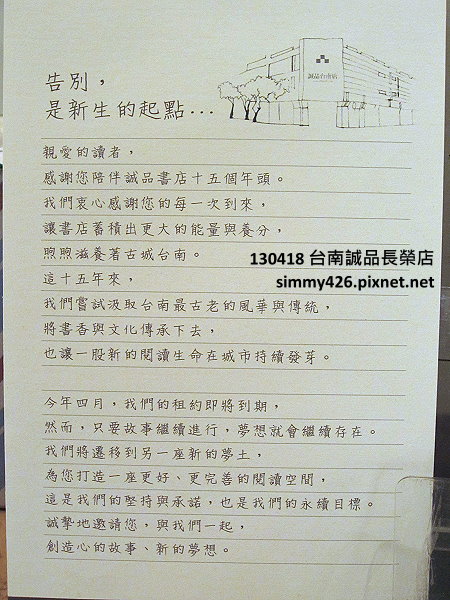 告別，
是新生的起點…
誠品台南店
親愛的讀者，
感謝您陪伴誠品書店十五個年頭。
我們衷心感謝您的每一次到來，
讓書店蓄積出更大的能量與養分，
煦煦滋養著古城台南。
這十五年來，
我們嘗試汲取台南最古老的風華與傳統，
將書香與文化傳承下去，
也讓一股新的閱讀生命在城市持續發芽。
130418 台南誠品長榮店
simmy426.pixnet.net
今年四月，我們的租約即將到期，
然而，只要故事繼續進行，夢想就會繼續存在。
我們將遷移到另一座新的夢土，
為您打造一座更好、更完善的閱讀空間，
這是我們的堅持與承諾，也是我們的永續目標。
誠摯地邀請您，與我們一起，
創造心的故事、新的夢想。